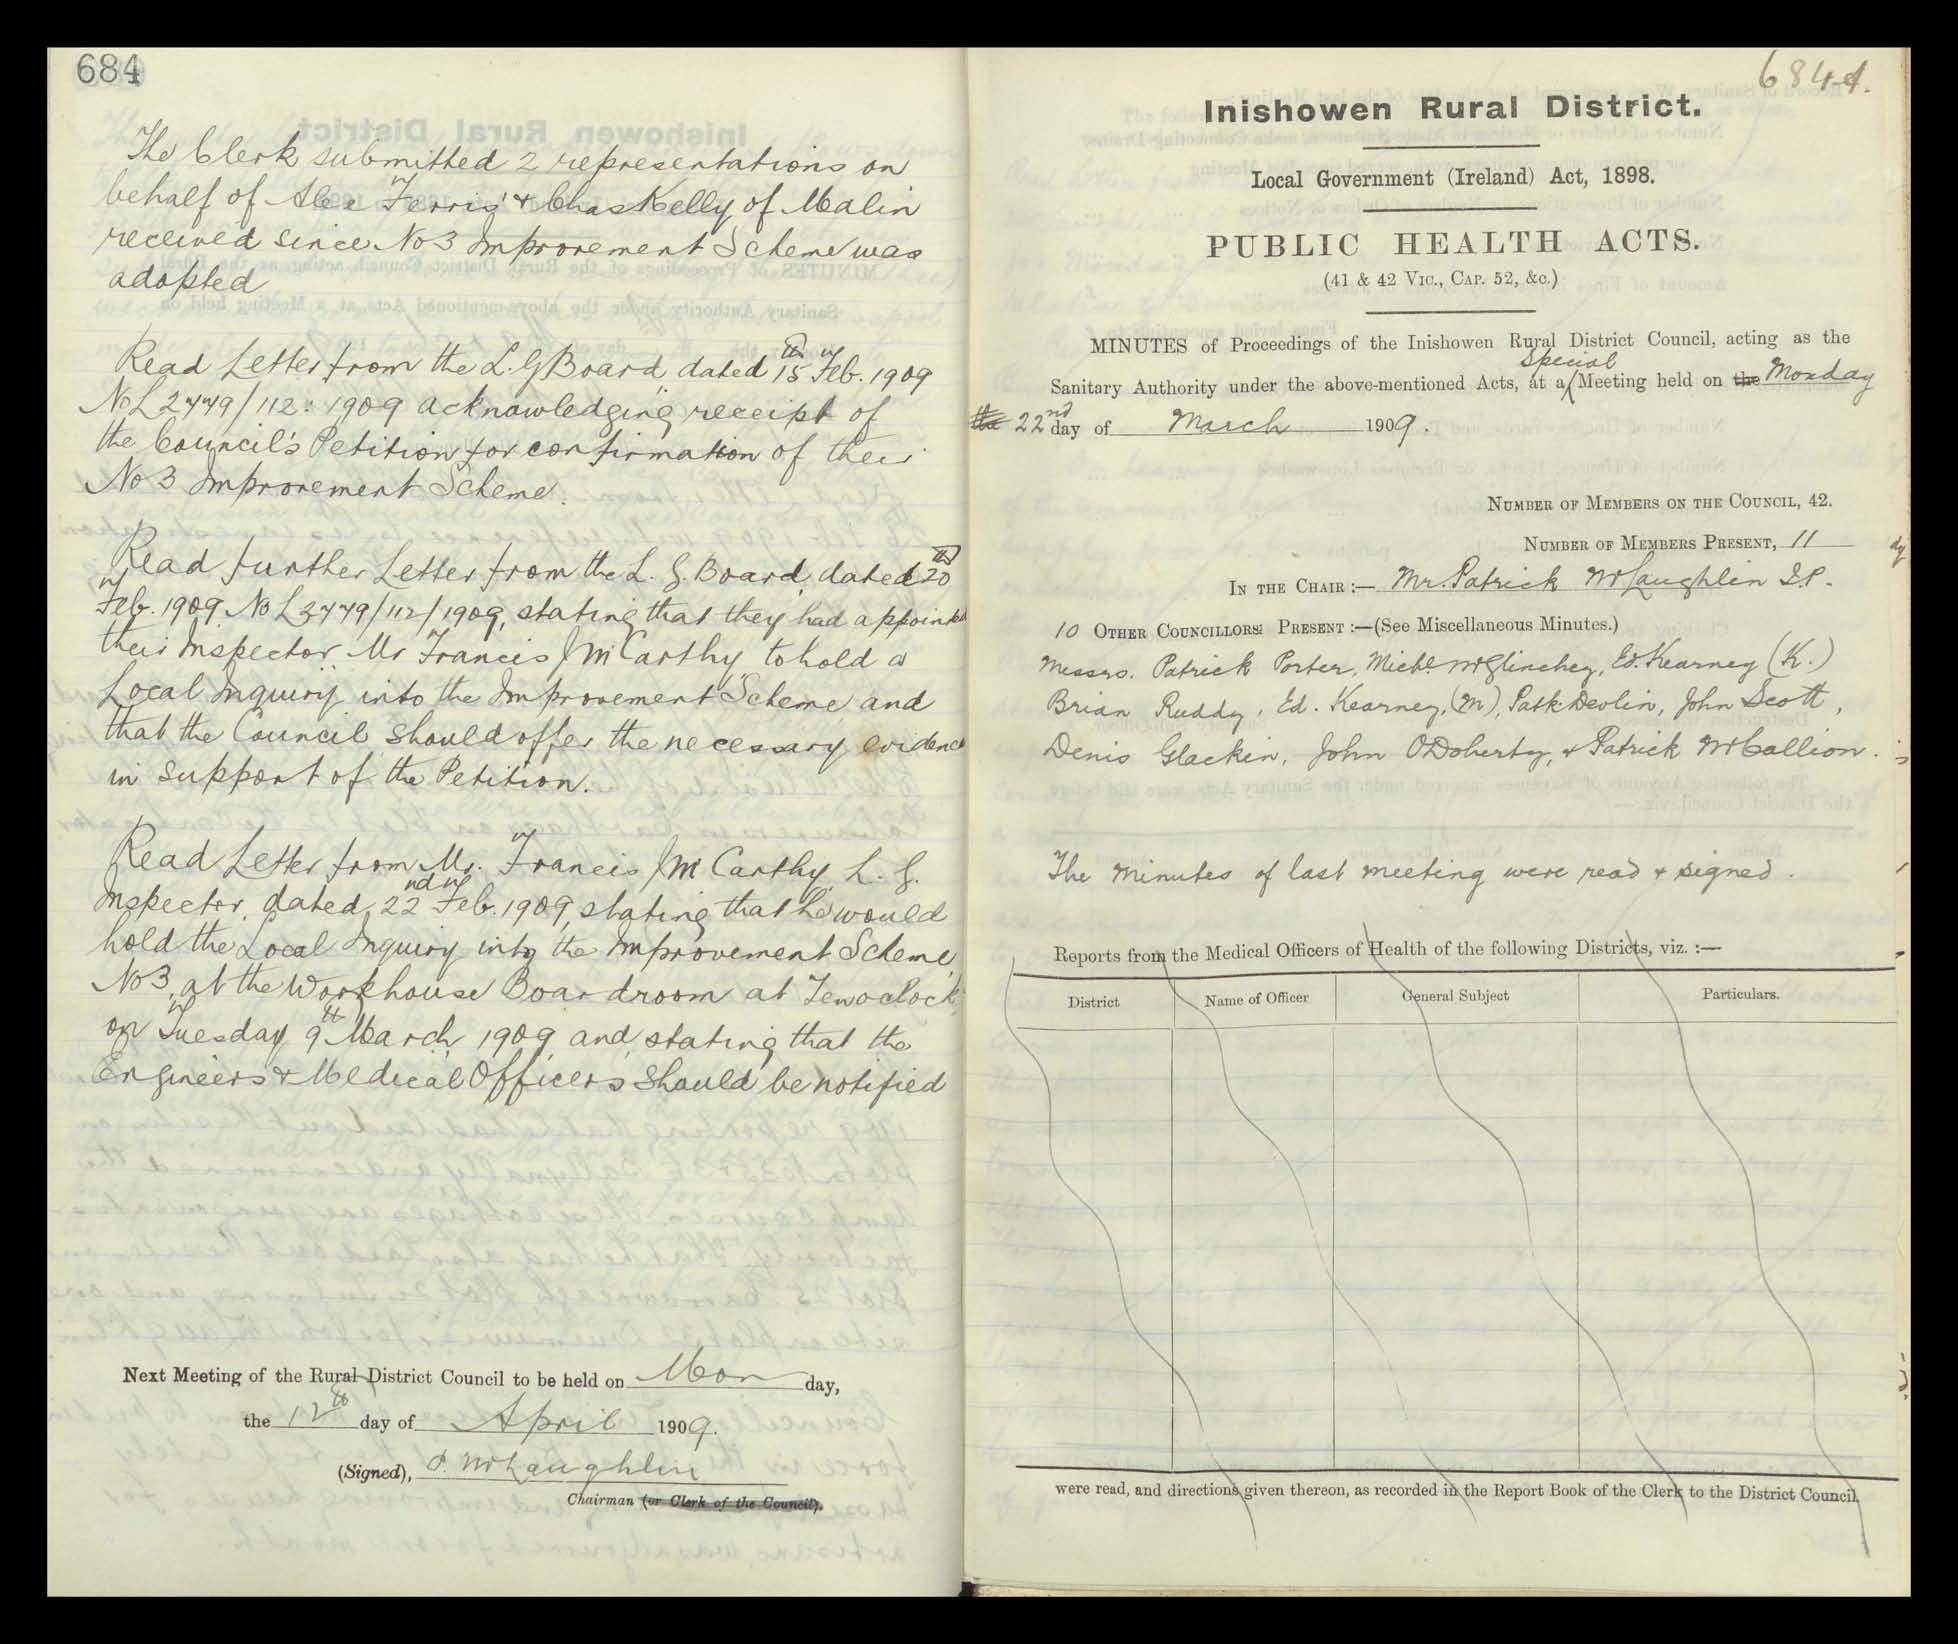 684
The Clerk submitted 2 representations on
behalf of Alex Ferris & Chas Kelly of Malin
received since No 3 Improvement Scheme was
adopted
Read Letter from the L. G Board dated 15th Feb. 1909
No L 2779/112: 1909 acknowledging receipt of
the Council's Petition for confirmation of their
No 3 Improvement Scheme.
Read further Letter from the L. G. Board, dated 20th
Feb. 1909. No L 3779/112/1909, stating that they had appointed
their Inspector Mr Francis J McCarthy to hold a
Local Inquiry into the Improvement Scheme and
that the Council should offer the necessary evidence
in support of the Petition.
Read Letter from Mr. Francis J McCarthy, L. G.
Inspector, dated, 22nd Feb. 1909, stating that he would
hold the Local Inquiry into the Improvement Scheme,
No 3, at the Workhouse Boardroom at Ten o'clock
on Tuesday 9th March, 1909, and stating that the
Engineers & Medical Officers should be notified
Next Meeting of the Rural District Council to be held on Mon day,
the 12th day of April 1909.
(Signed), P. McLaughlin
Chairman (or Clerk of the Council).
684A.
Inishowen Rural District.
Local Government (Ireland) Act, 1898.
PUBLIC HEALTH ACTS.
(41 & 42 Vic., Cap. 52, &c.)
MINUTES of Proceedings of the Inishowen Rural District Council, acting as the
Sanitary Authority under the above-mentioned Acts, at a Special Meeting held on the Monday
the 22nd day of March 1909.
Number of Members on the Council, 42.
Number of Members Present, 11
In the Chair :— Mr. Patrick McLaughlin J.P.
10 Other Councillors Present :—(See Miscellaneous Minutes.)
Messrs. Patrick Porter, Michl. McGlinchey, Ed. Kearney (K.)
Brian Ruddy, Ed. Kearney, (M), Patk. Devlin, John Scott,
Denis Glackin, John O'Doherty, & Patrick McCallion.
The minutes of last meeting were read & signed.
Reports from the Medical Officers of Health of the following Districts, viz. :—
District Name of Officer General Subject Particulars.
were read, and directions given thereon, as recorded in the Report Book of the Clerk to the District Council.